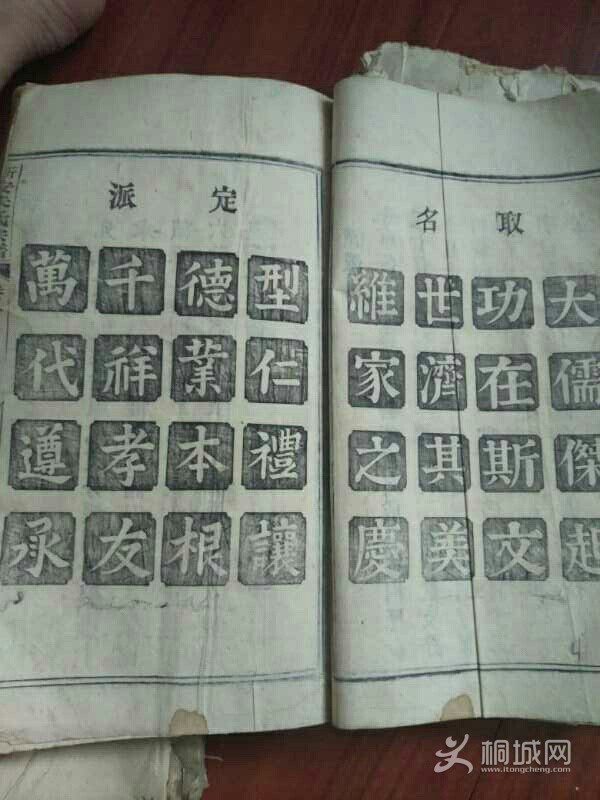 取名
大儒傑起
功在斯文
世濟其美
維家之慶
定派
型仁禮讓
德業本根
千祥孝友
萬代遵承
4
桐城网
www.itongcheng.com